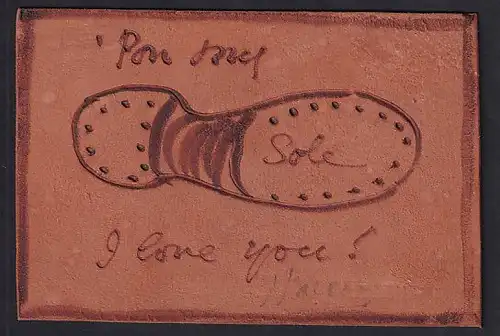 'Pon my
Sole
I love you!